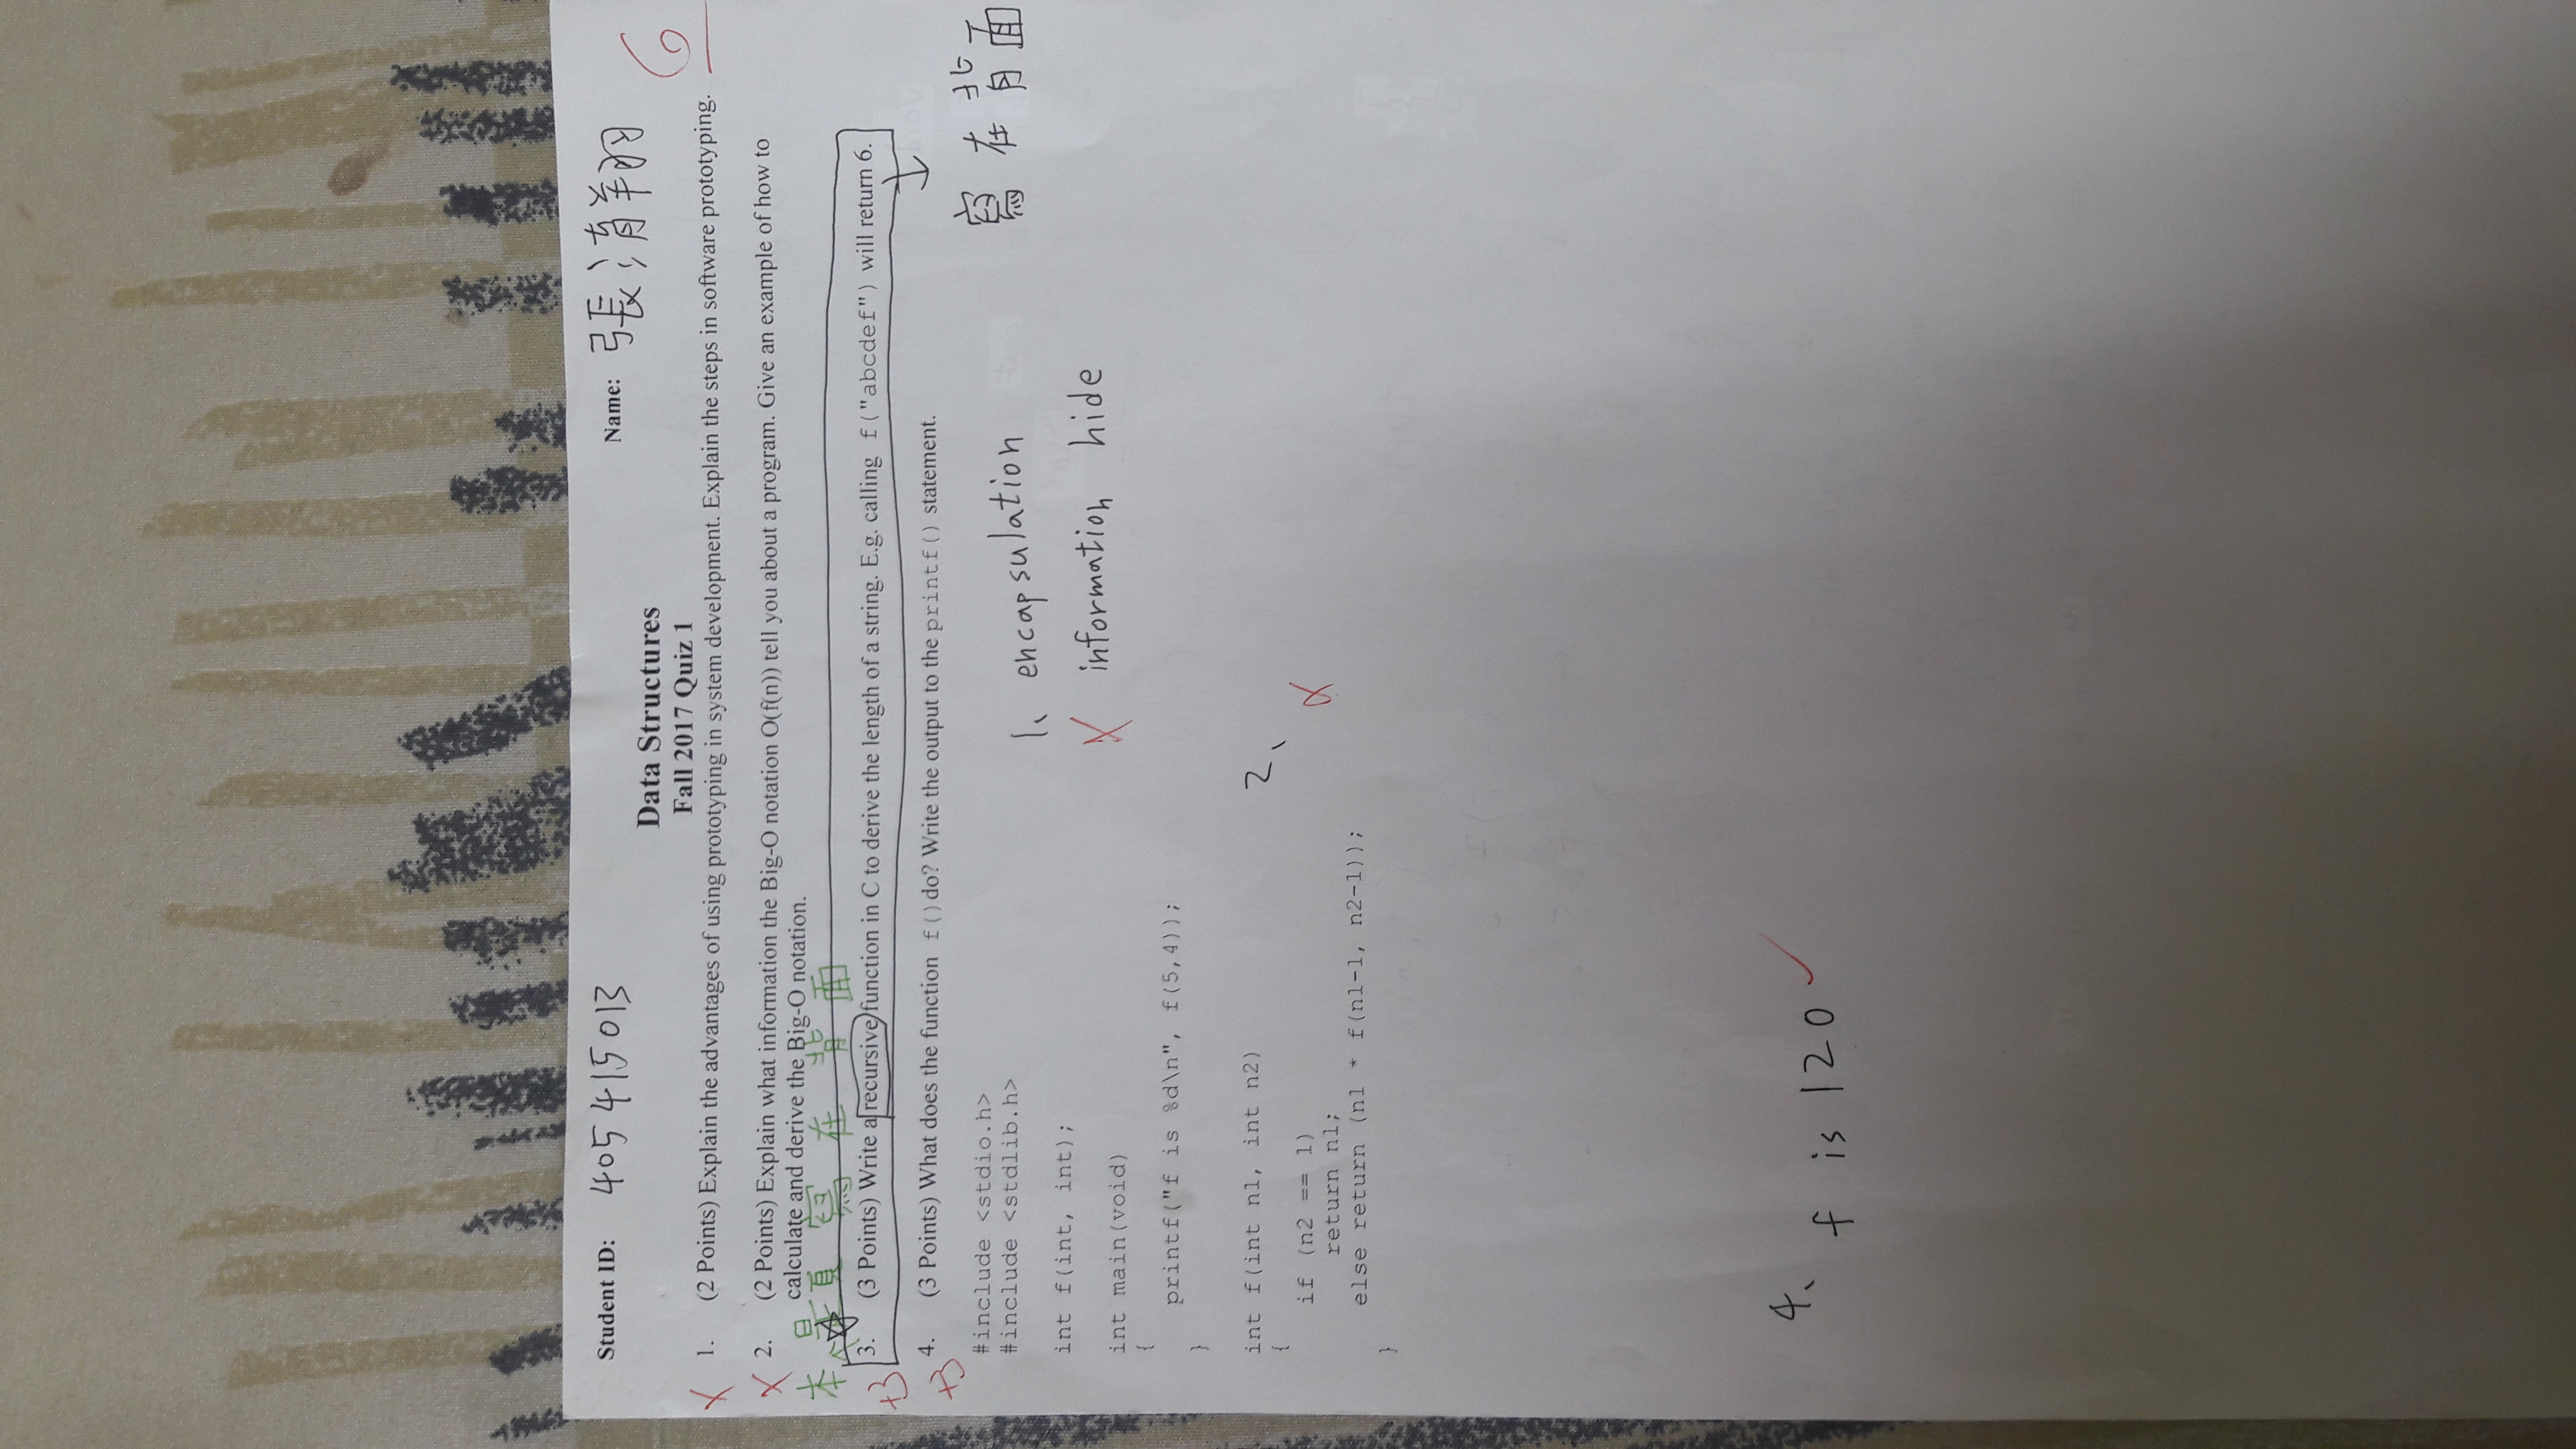 Student ID: 405415013 Name: 張清翔
Data Structures
Fall 2017 Quiz 1
6
X 1. (2 Points) Explain the advantages of using prototyping in system development. Explain the steps in software prototyping.
X 2. (2 Points) Explain what information the Big-O notation O(f(n)) tell you about a program. Give an example of how to
calculate and derive the Big-O notation.
本題寫在背面
+3 3. (3 Points) Write a recursive function in C to derive the length of a string. E.g. calling f("abcdef") will return 6.
寫在背面
+3 4. (3 Points) What does the function f() do? Write the output to the printf() statement.
#include <stdio.h>
#include <stdlib.h>
int f(int, int);
int main(void)
{
printf("f is %d\n", f(5,4));
}
int f(int n1, int n2)
{
if (n2 == 1)
return n1;
else return (n1 * f(n1-1, n2-1));
}
1、 encapsulation
X information hide
2、
X
4、
f is 120